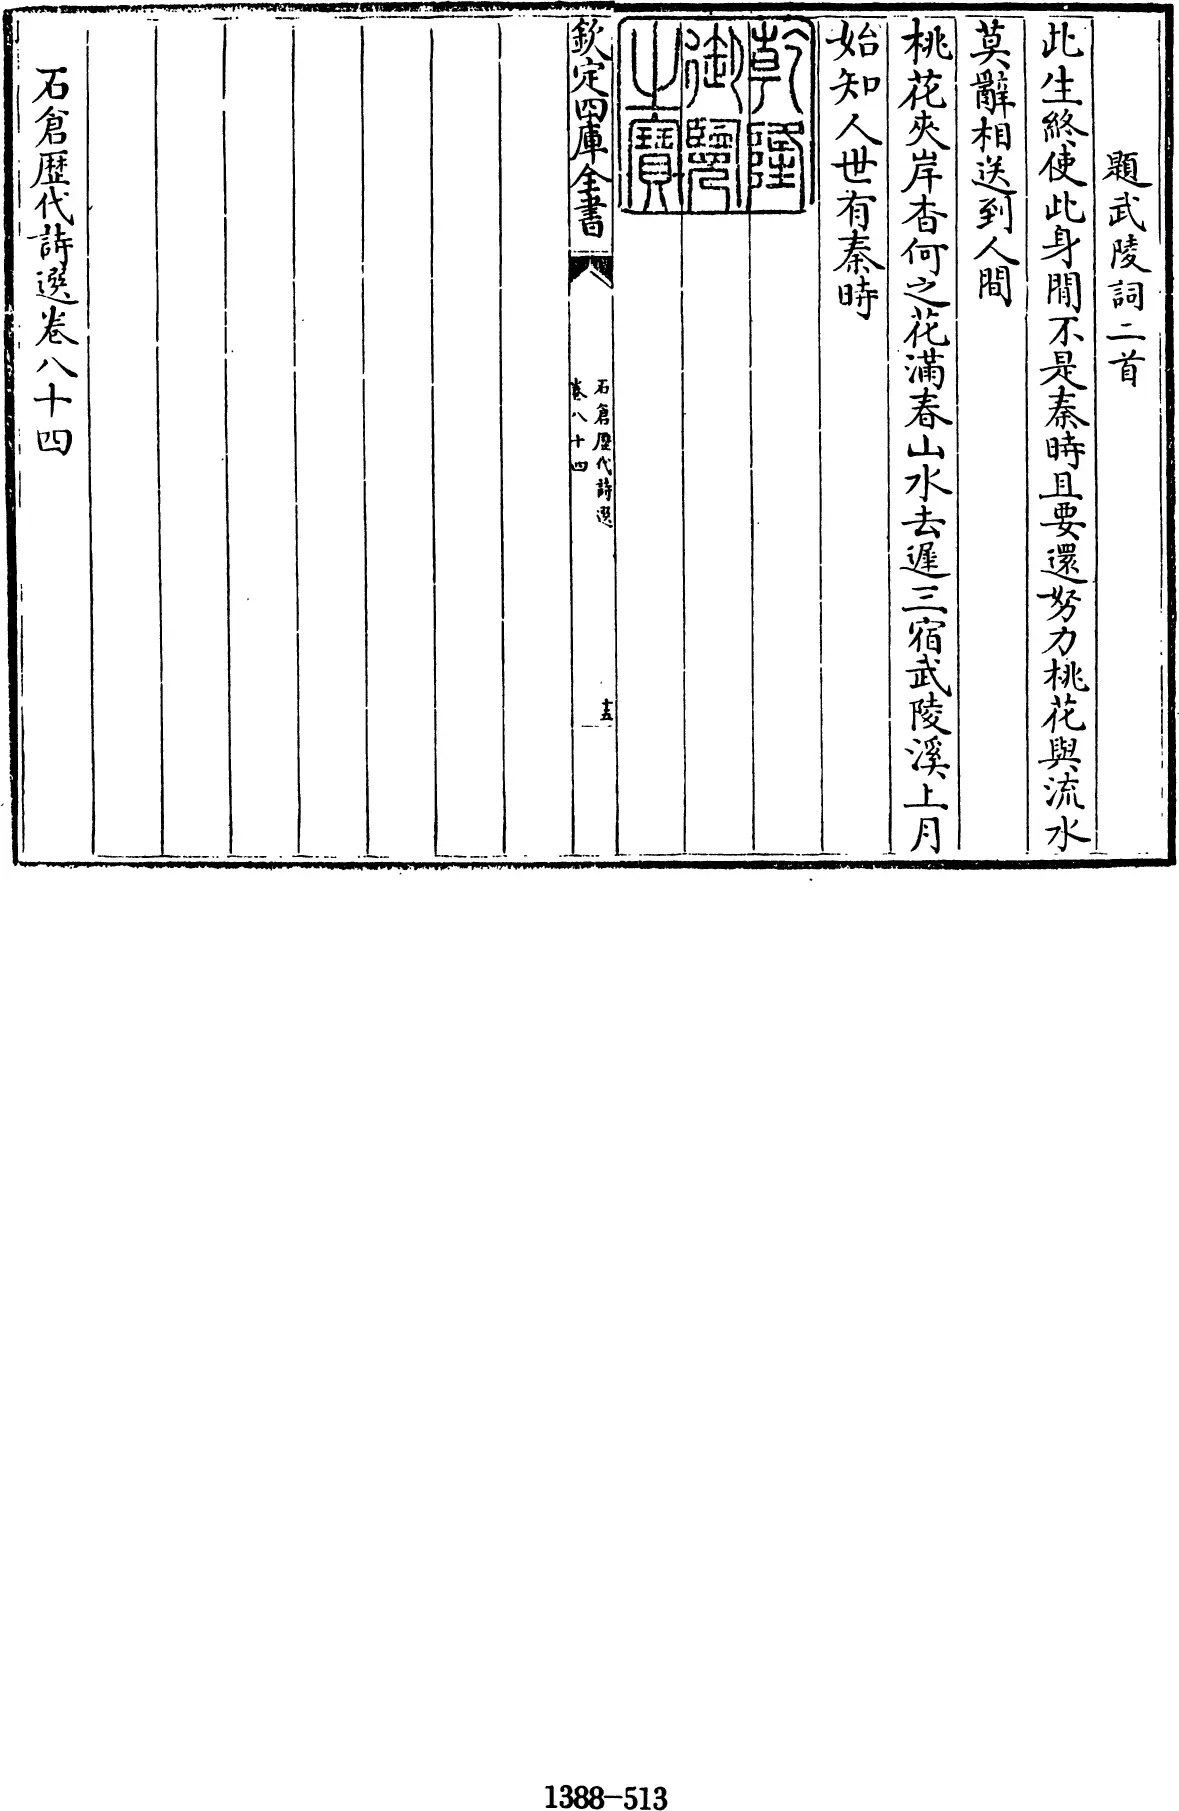 題武陵詞二首
此生終使此身閒不是秦時且要還努力桃花與流水
莫辭相送到人間
桃花夾岸杳何之花滿春山水去遲三宿武陵溪上月
始知人世有秦時
乾隆
御覽
之寶
欽定四庫全書
石倉歴代詩選
卷八十四
十五
石倉歴代詩選卷八十四
1388-513